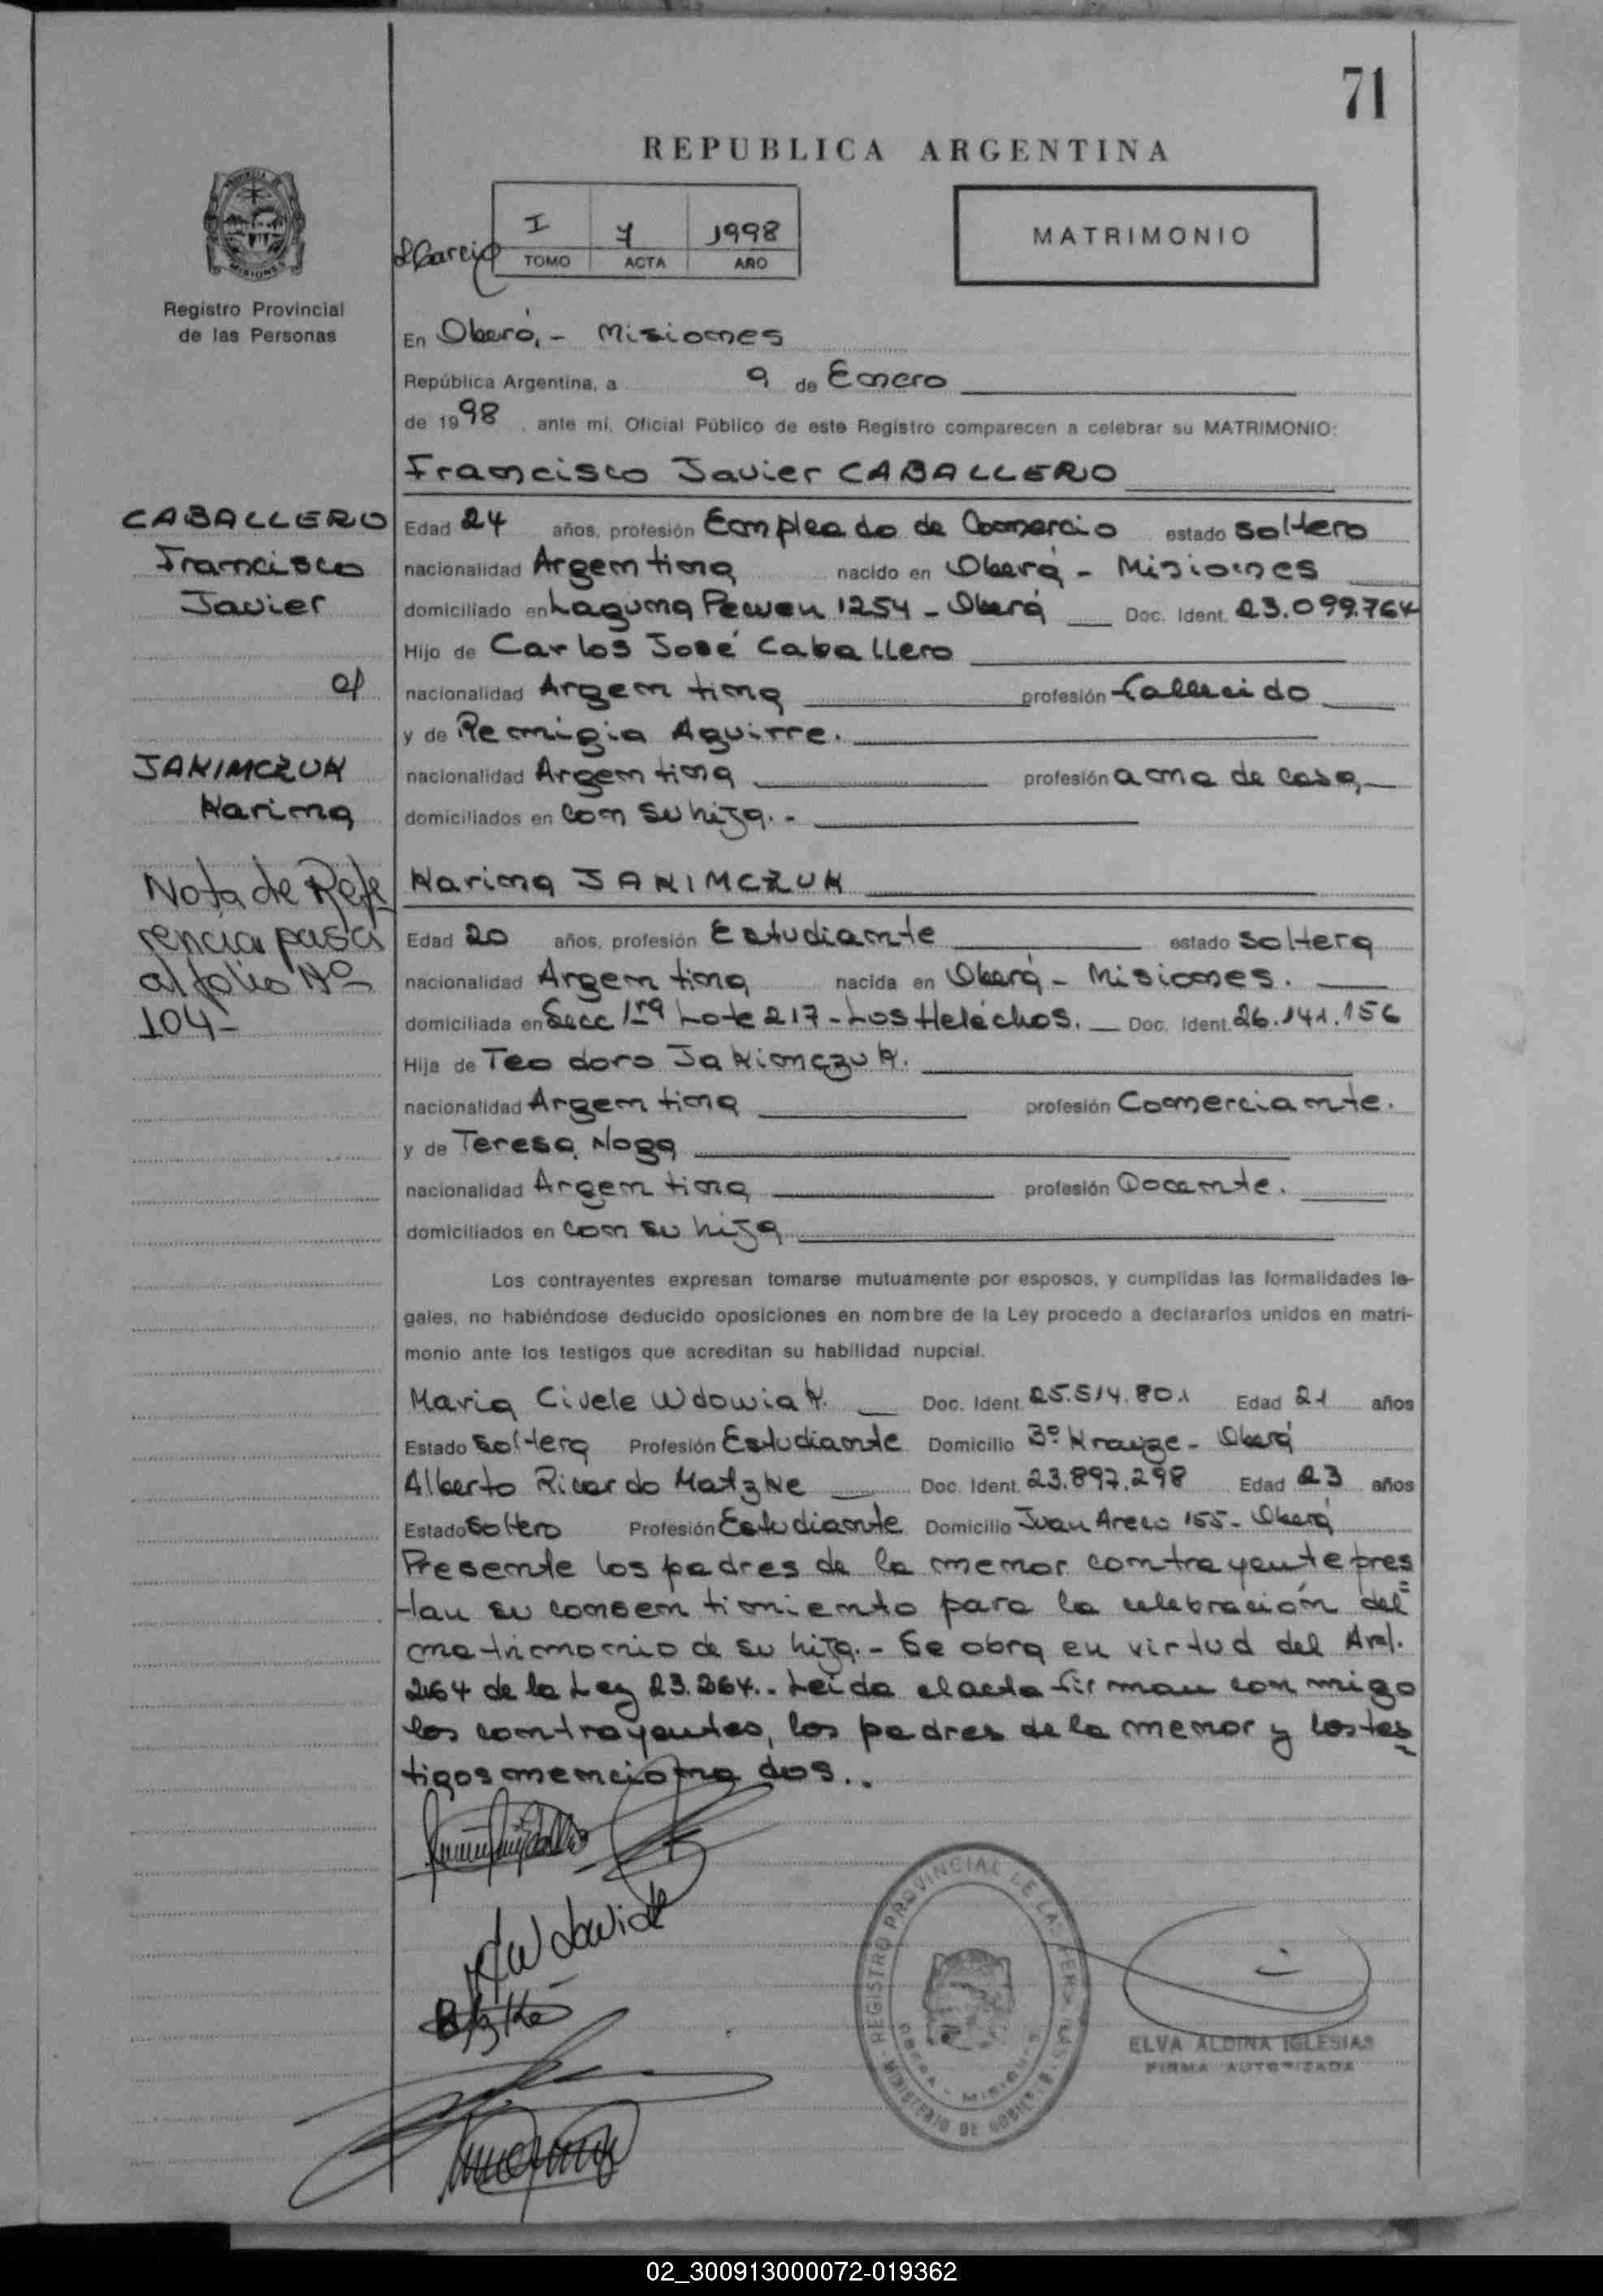 71
REPUBLICA ARGENTINA
I 7 1998
TOMO ACTA AÑO
MATRIMONIO
Registro Provincial
de las Personas
En Oberá,- Misiones
República Argentina, a 9 de Enero
de 1998, ante mí, Oficial Público de este Registro comparecen a celebrar su MATRIMONIO:
Francisco Javier CABALLERO
CABALLERO
Francisco
Javier
c/
JAKIMCZUK
Karina
Nota de Refe
rencia pasa
al folio Nº
104-
Edad 24 años, profesión Empleado de Comercio estado soltero
nacionalidad Argentina nacido en Oberá - Misiones
domiciliado en Laguna Pewen 1254 - Oberá Doc. Ident. 23.099.764
Hijo de Carlos José Caballero
nacionalidad Argentina profesión fallecido
y de Remigia Aguirre.
nacionalidad Argentina profesión ama de casa,
domiciliados en con su hija.-
Karina JAKIMCZUK
Edad 20 años, profesión Estudiante estado soltera
nacionalidad Argentina nacida en Oberá - Misiones.
domiciliada en Secc 1ra Lote 217 - Los Helechos. Doc. Ident. 26.141.156
Hija de Teodoro Jakimczuk.
nacionalidad Argentina profesión Comerciante.
y de Teresa Noga
nacionalidad Argentina profesión Docente.
domiciliados en con su hija
Los contrayentes expresan tomarse mutuamente por esposos, y cumplidas las formalidades le-
gales, no habiéndose deducido oposiciones en nombre de la Ley procedo a declararlos unidos en matri-
monio ante los testigos que acreditan su habilidad nupcial.
Maria Civele Wdowiak. Doc. Ident. 25.514.801 Edad 21 años
Estado Soltera Profesión Estudiante Domicilio Bº Krauze - Oberá
Alberto Ricardo Matzke Doc. Ident. 23.897.298 Edad 23 años
Estado Soltero Profesión Estudiante Domicilio Juan Areco 155 - Oberá
Presente los padres de la menor contrayente pres
tan su consentimiento para la celebración del
matrimonio de su hija.- Se obra en virtud del Art.
264 de la Ley 23.264.- Leida el acta firman conmigo
los contrayentes, los padres de la menor y los tes
tigos mencionados..
REGISTRO PROVINCIAL DE LAS PERSONAS
OBERA - MISIONES
MINISTERIO DE GOBIERNO
ELVA ALDINA IGLESIAS
FIRMA AUTORIZADA
02_300913000072-019362